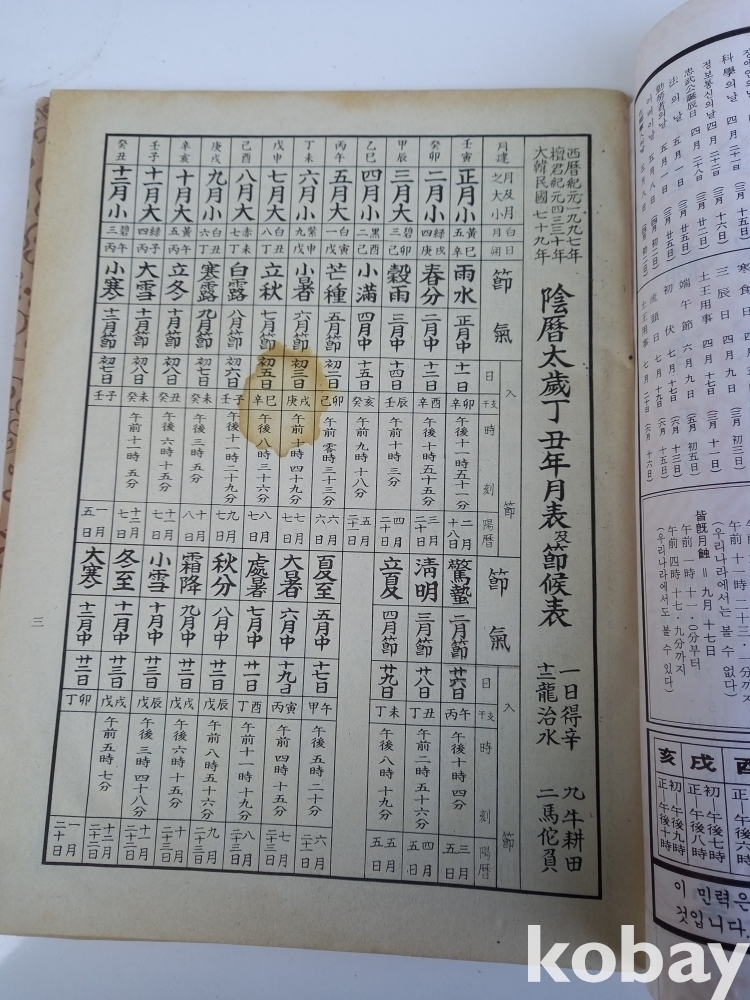 科學의날 四月 二十一日
정보통신의날 四月 二十二日 (三月 十六日)
忠武公誕辰日 四月 二十八日 (三月 廿二日)
法의날 五月 一日 (三月 廿五日)
勤勞者의날 五月 一日 (三月 廿五日)
어버이날 五月 八日 (四月 初二日)
寒食日
三辰日 四月 九日 (三月 初三日)
土王用事 四月 十七日 (三月 十一日)
端午節 六月 九日 (五月 初五日)
初伏 七月 十七日 (六月 十三日)
土王用事 七月 二十日 (六月 十六日)
午前 十一時 二十三・一分까지
(우리나라에서는 볼 수 없다)
皆旣月蝕 = 九月 十七日
午前 一時 十一・○分부터
午前 四時 十七・九分까지
(우리나라에서도 볼 수 있다)
酉 正 午後六時
戌 初 午後七時 正 午後八時
亥 初 午後九時 正 午後十時
이 민력은
것입니다.
西曆紀元一九九七年
檀君紀元四三三十年
大韓民國七十九年
陰曆太歲丁丑年月表及節候表
一日得辛 九牛耕田
十二龍治水 二馬佗負
月建 月及月之大小 月白 日朔 節氣 入節 日 干支 時刻 陽曆 節氣 入節 日 干支 時刻 陽曆
壬寅 正月小 五黃 辛巳 雨水 正月中 十一日 辛卯 午後十一時五十一分 二月十八日 驚蟄 二月節 廿六日 丙午 午後十時四分 三月五日
癸卯 二月小 四綠 庚戌 春分 二月中 十二日 辛酉 午後十時五十五分 三月二十日 淸明 三月節 廿八日 丁丑 午前二時五十六分 四月五日
甲辰 三月大 三碧 己卯 穀雨 三月中 十四日 壬辰 午前十時三分 四月二十日 立夏 四月節 廿九日 丁未 午後八時十九分 五月五日
乙巳 四月小 二黑 己酉 小滿 四月中 十五日 癸亥 午前九時十八分 五月二十一日
丙午 五月大 一白 戊寅 芒種 五月節 初一日 己卯 午前零時三十三分 六月六日 夏至 五月中 十七日 甲午 午後五時二十分 六月二十一日
丁未 六月小 九紫 戊申 小暑 六月節 初三日 庚戌 午前十時四十九分 七月七日 大暑 六月中 十九日 丙寅 午前四時十五分 七月二十三日
戊申 七月大 八白 丁丑 立秋 七月節 初五日 辛巳 午後八時三十六分 八月七日 處暑 七月中 廿一日 丁酉 午前十一時十九分 八月二十三日
己酉 八月大 七赤 丁未 白露 八月節 初六日 壬子 午後十一時二十九分 九月七日 秋分 八月中 廿二日 戊辰 午前八時五十六分 九月二十三日
庚戌 九月小 六白 丁丑 寒露 九月節 初七日 癸未 午後三時五分 十月八日 霜降 九月中 廿二日 戊戌 午後六時十五分 十月二十三日
辛亥 十月大 五黃 丙午 立冬 十月節 初八日 癸丑 午後六時十五分 十一月七日 小雪 十月中 廿三日 戊辰 午後三時四十八分 十一月二十二日
壬子 十一月大 四綠 丙子 大雪 十一月節 初八日 癸未 午前十一時五分 十二月七日 冬至 十一月中 廿三日 戊戌 午前五時七分 十二月二十二日
癸丑 十二月小 三碧 丙午 小寒 十二月節 初七日 壬子 一月五日 大寒 十二月中 廿二日 丁卯 一月二十日
三
kobay